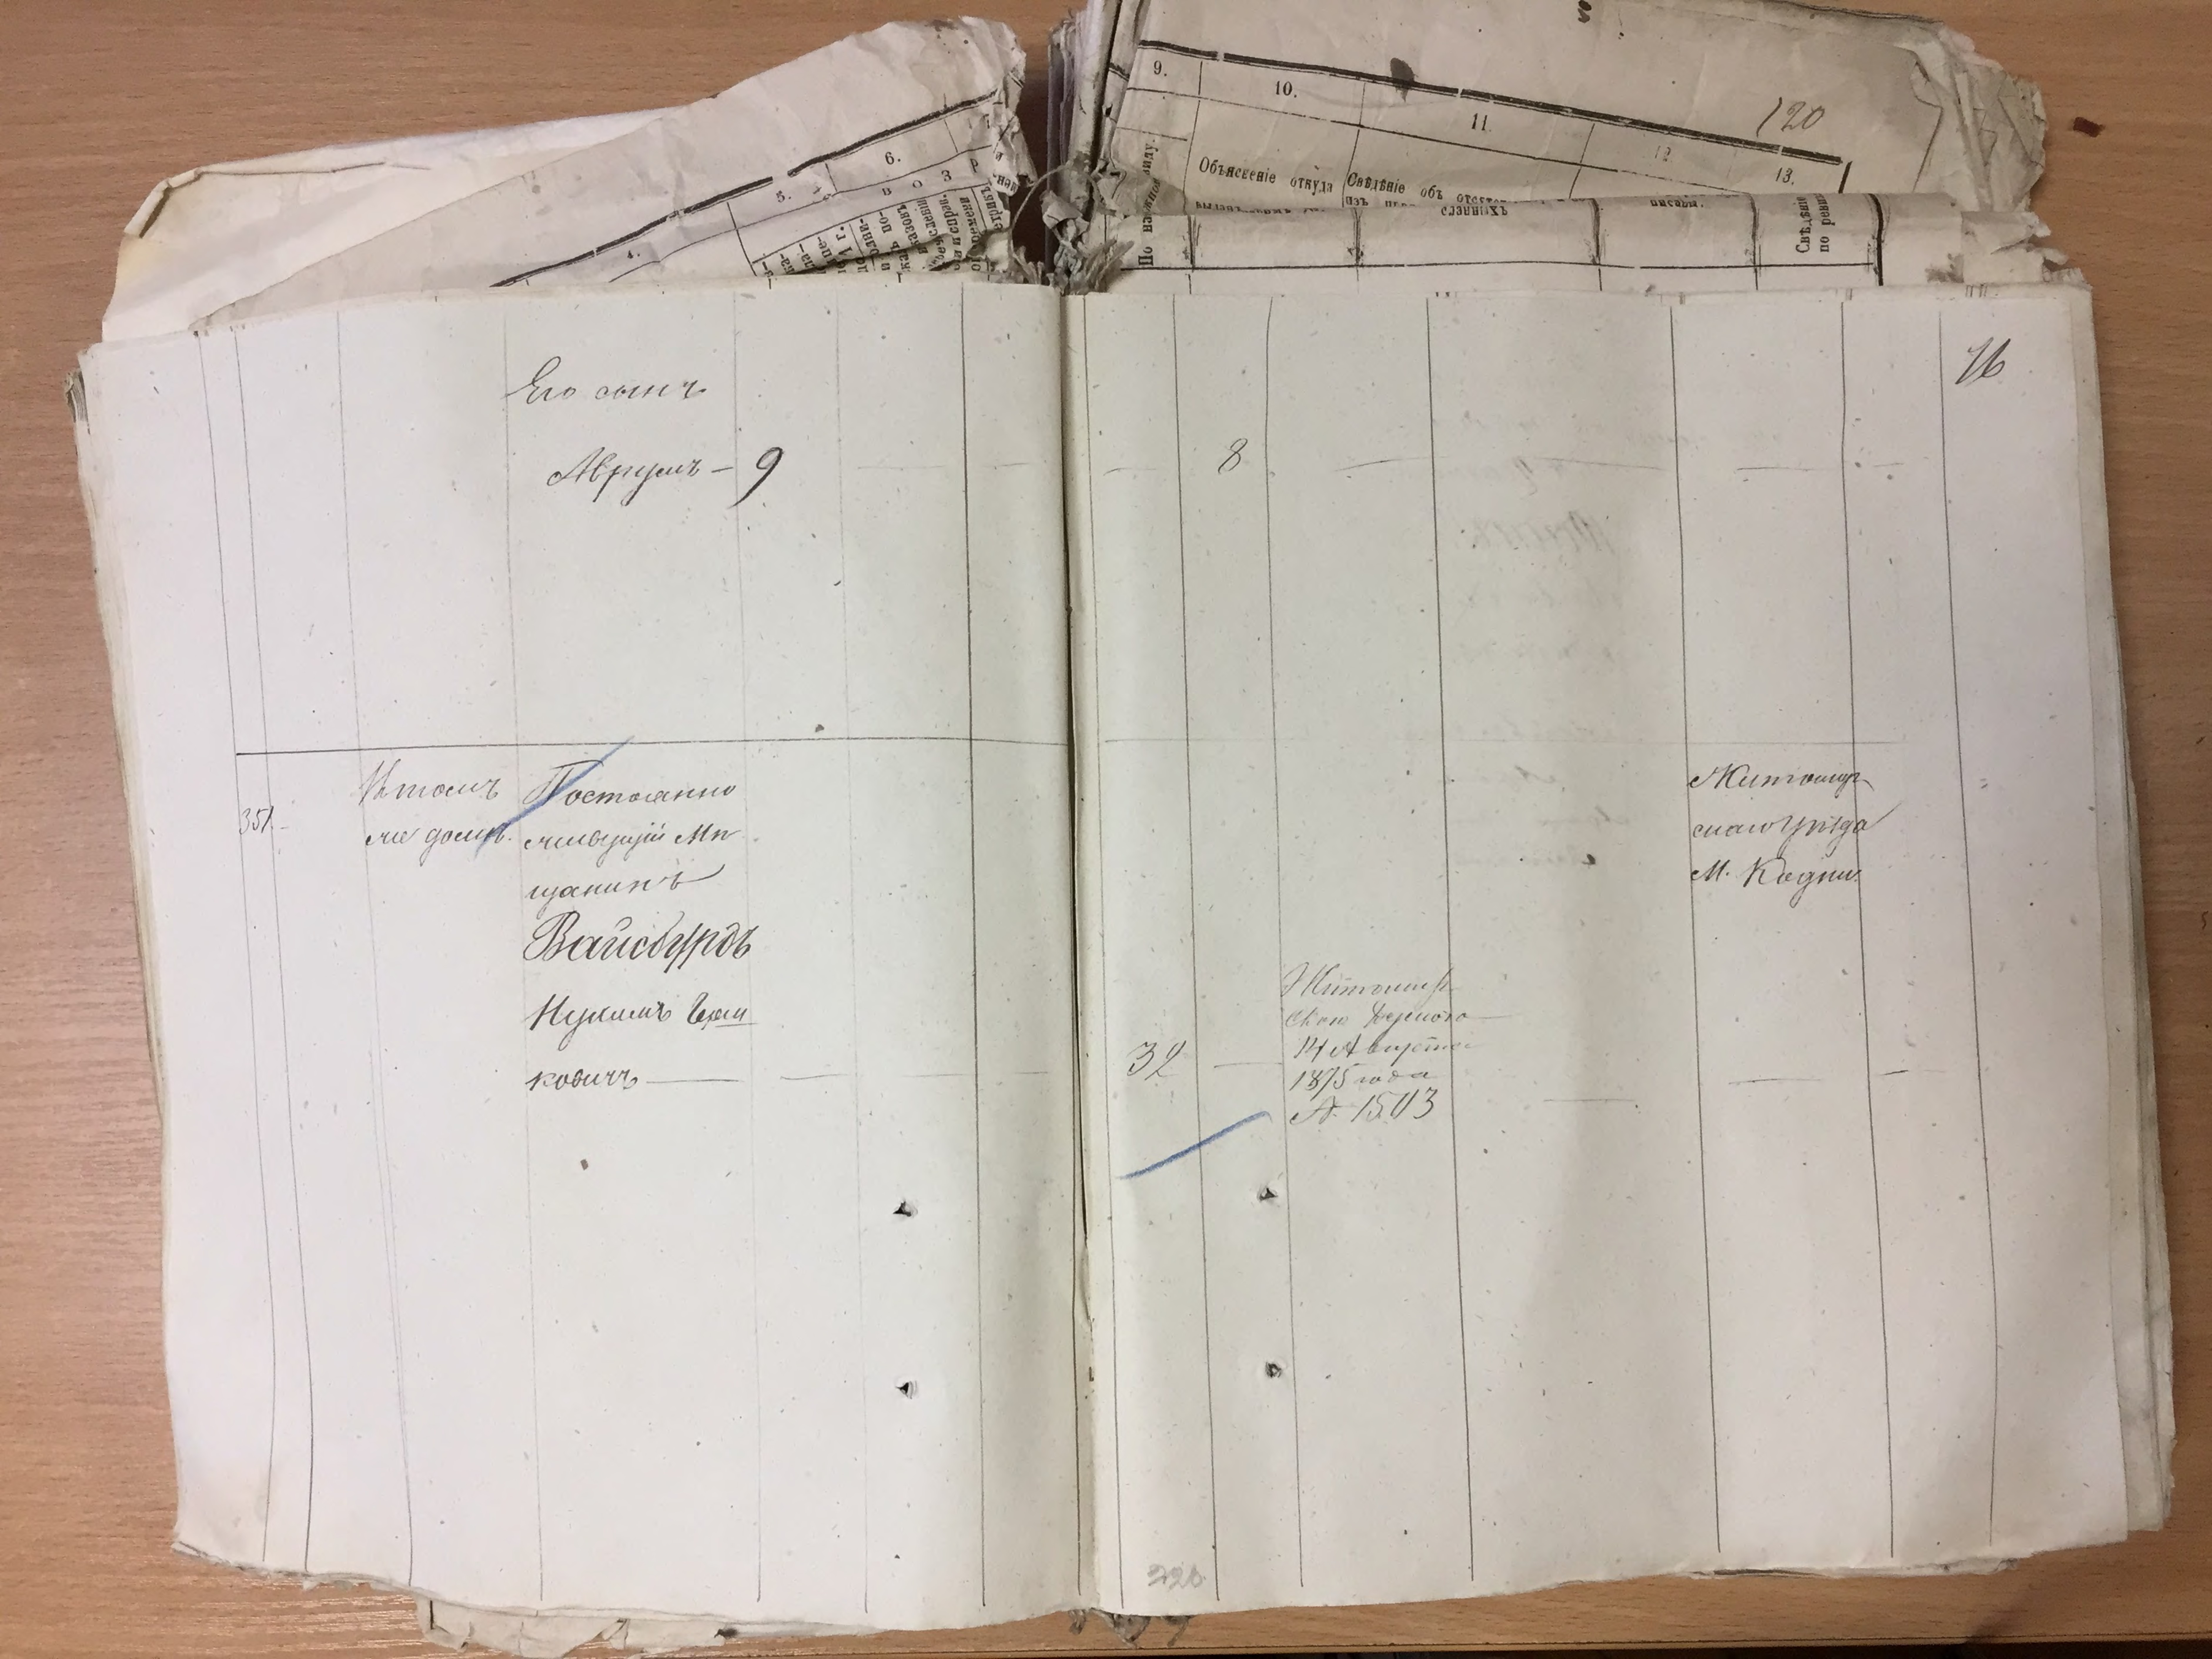 9.
10.
11.
12.
13.
120
4.
5.
6.
Объясненіе откуда
Свѣдѣніе объ отсутс
Свѣдѣніе
по ревиз
76
Его сынъ
Аврумъ — 9
8
351
Въ томъ
же домѣ.
Постоянно
живущій Мѣ
щанинъ
Вайсбурдъ
Нухимъ
ковичъ
32
Житомир
скою Думою
14 Августа
1875 года
№ 1503
Житомир
скаго уѣзда
М. Кодни